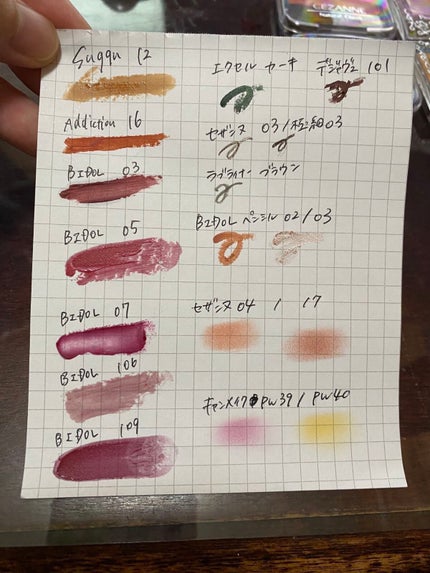 Suqqu 12
Addiction 16
BIDOL 03
BIDOL 05
BIDOL 07
BIDOL 106
BIDOL 109
エクセル カーキ
デジャヴュ 101
セザンヌ 03/極細03
ラブライナー ブラウン
BIDOL ペンシル 02/03
セザンヌ 04 / 17
キャンメイク PW39/PW40
CEZANNE